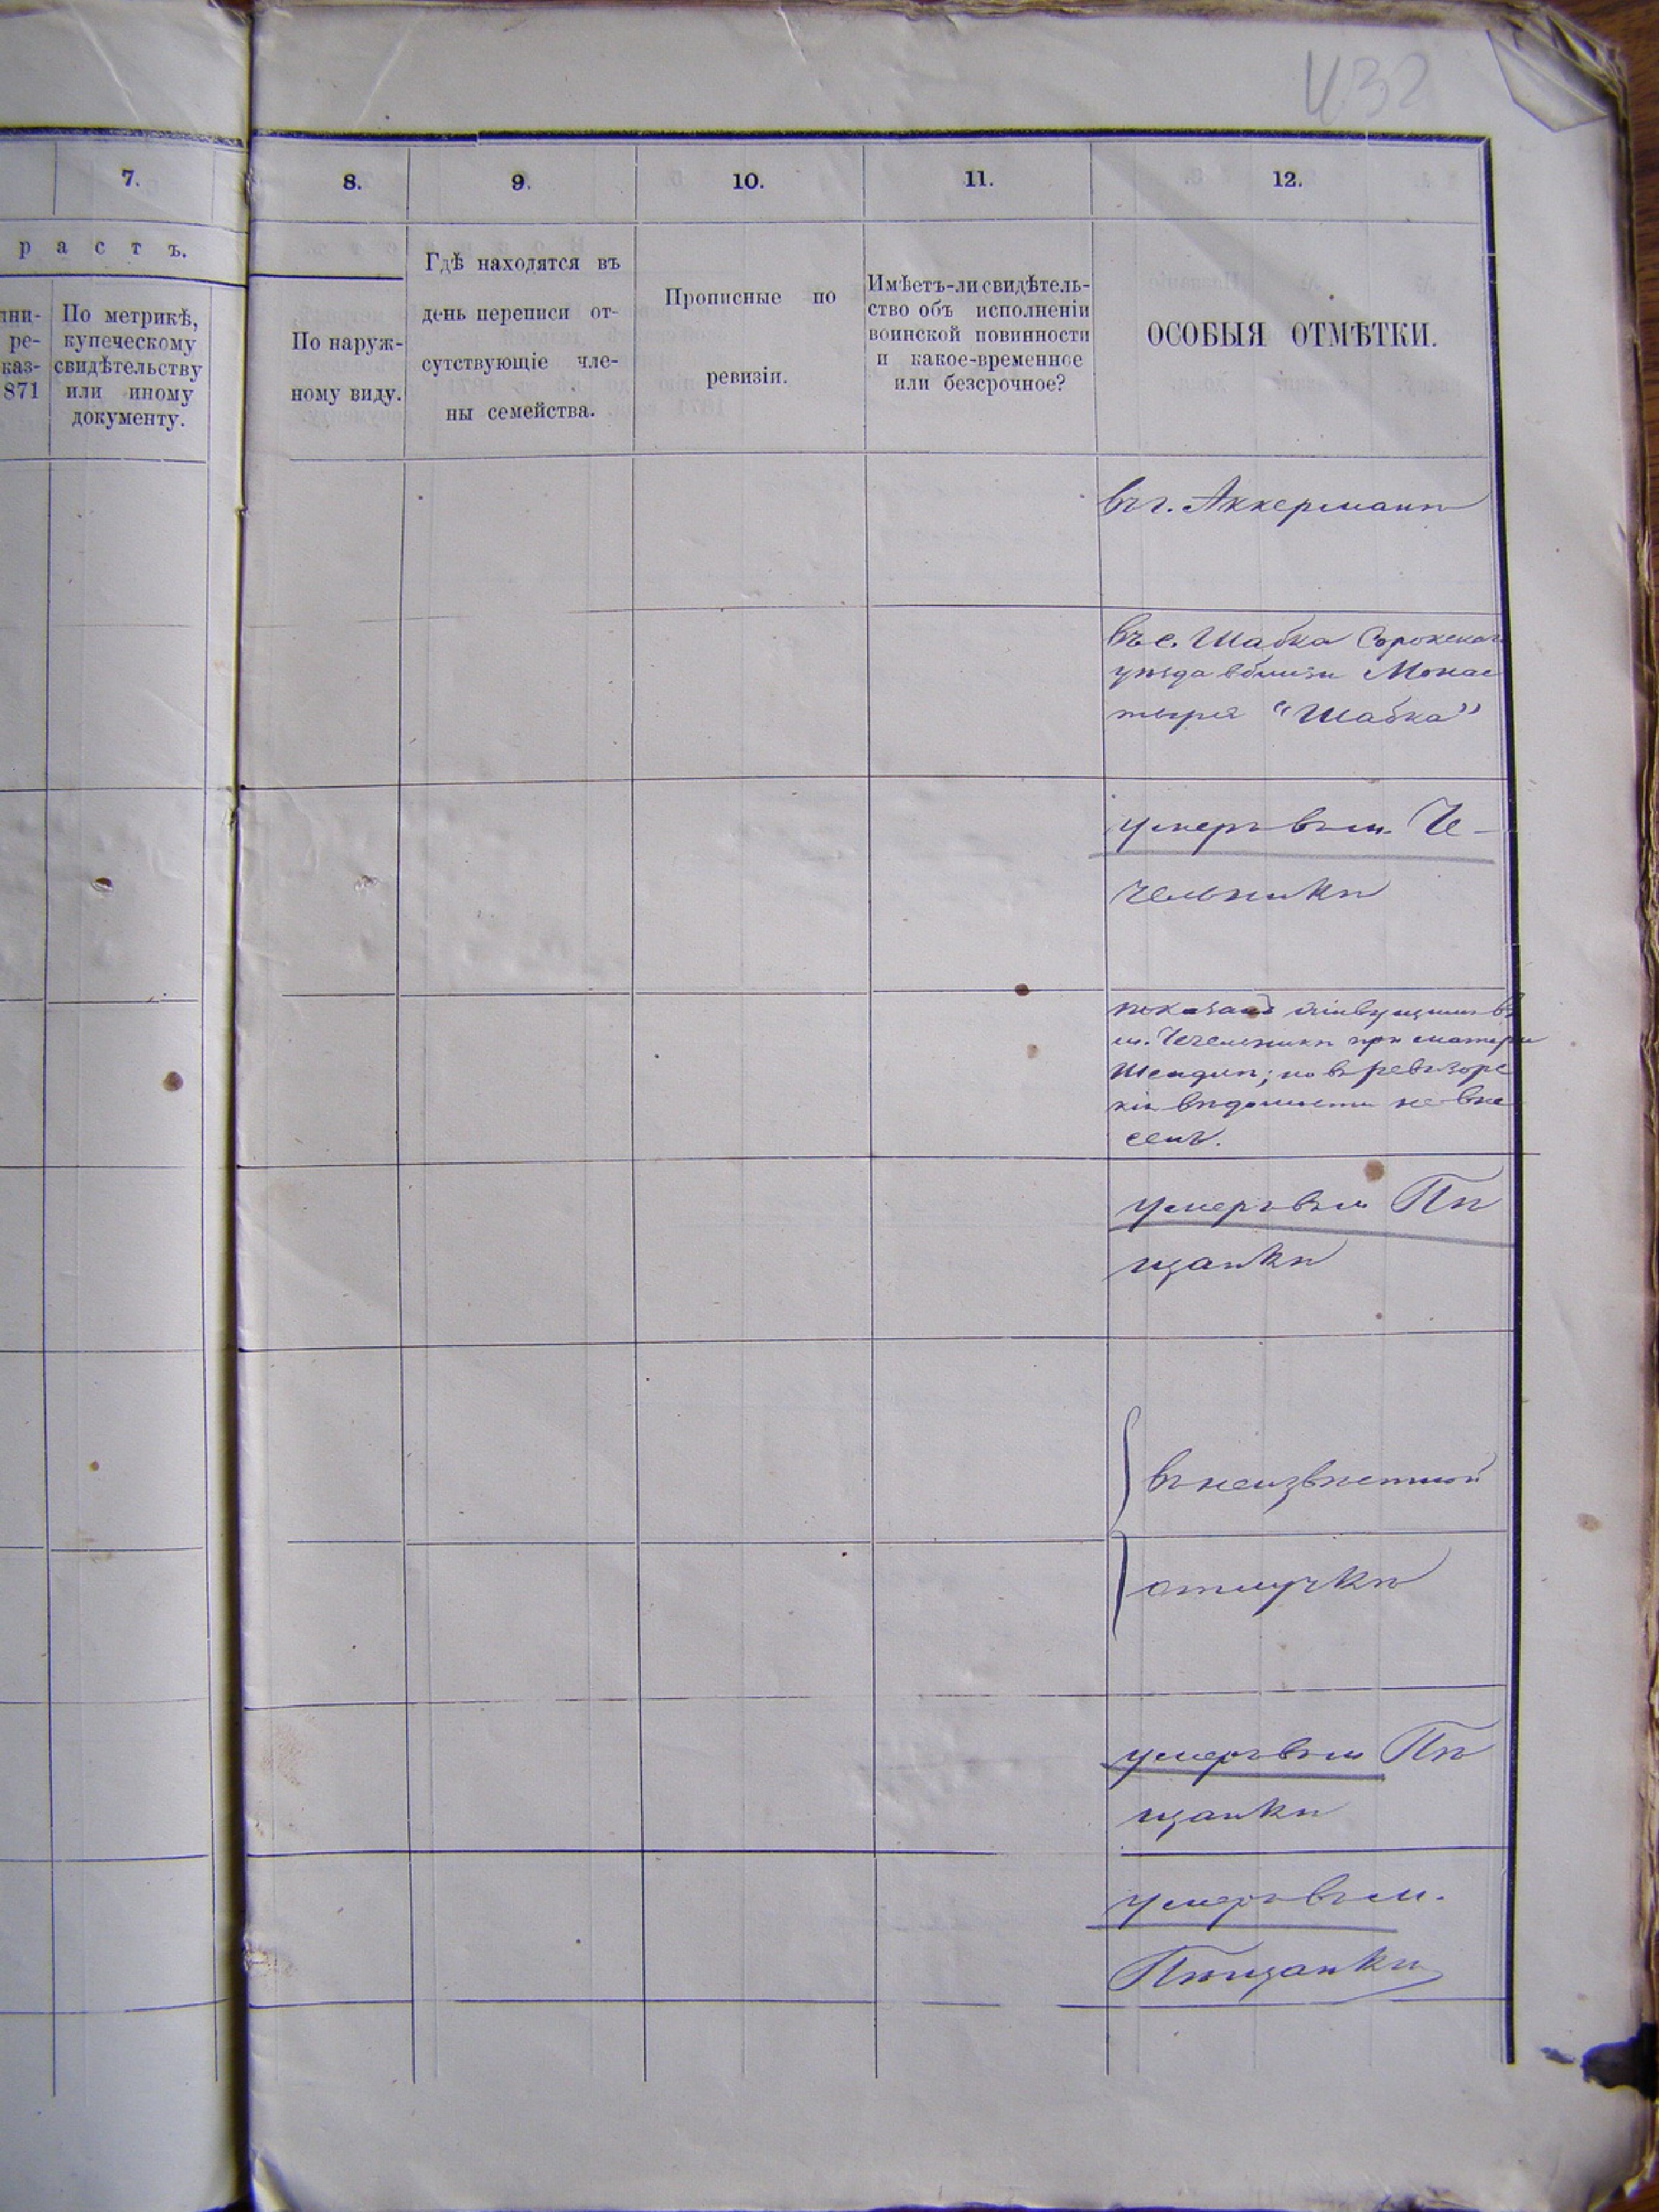 432
7.
8.
9.
10.
11.
12.
р а с т ъ.
пни-
ре-
каз-
871
По метрикѣ,
купеческому
свидѣтельству
или иному
документу.
По наруж-
ному виду.
Гдѣ находятся въ
день переписи от-
сутствующіе чле-
ны семейства.
Прописные по
ревизіи.
Имѣетъ-ли свидѣтель-
ство объ исполненіи
воинской повинности
и какое-временное
или безсрочное?
ОСОБЫЯ ОТМѢТКИ.
въ г. Аккерманѣ
въ с. Шабка Сорокскаго
уѣзда вблизи Монас
тыря "Шабка"
умеръ въ м. Че-
чельникѣ
показанъ живущимъ въ
м. Чечельникѣ при матери
но въ ревизорс
кія вѣдомости не вне
сенъ.
умеръ въ м Пѣ
щанкѣ
въ неизвѣстной
отлучкѣ
умеръ въ м Пѣ
щанкѣ
умеръ въ м.
Пѣщанкѣ